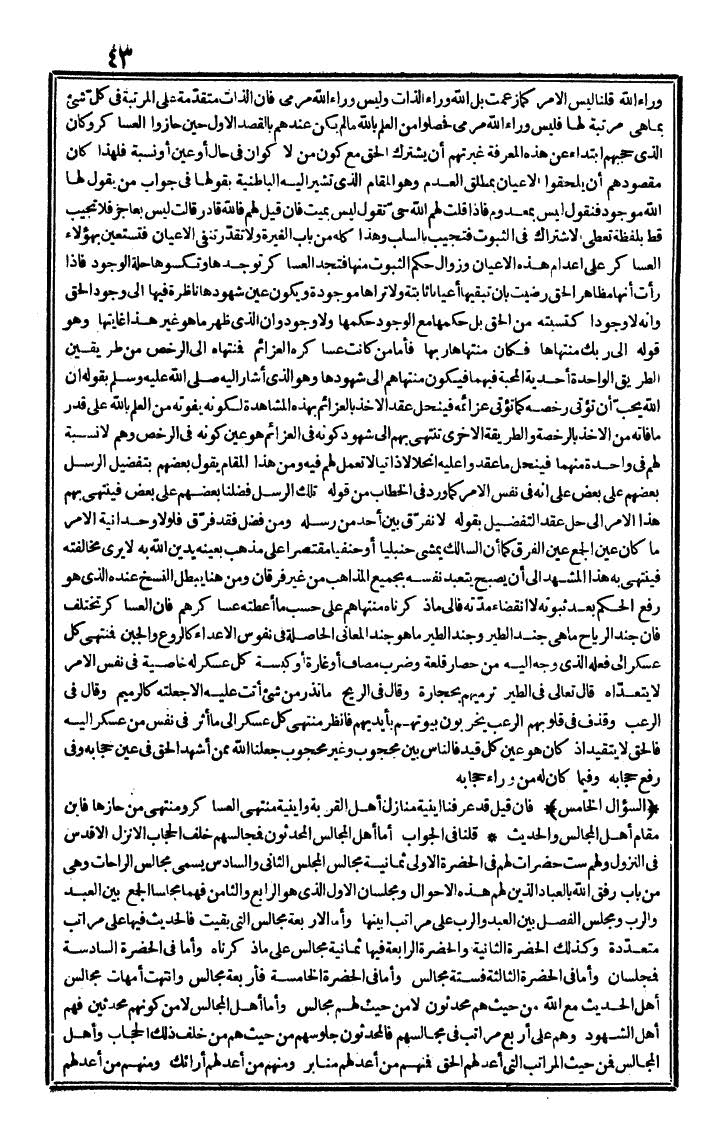 ٤٣
وراء الله قلنا ليس الامر كما زعمت بل الله وراء الذات وليس وراء الله مرمى فان الذات متقدمة على المرتبة فى كل شئ
بما هى مرتبة لها فليس وراء الله مرمى فحصلوا من العلم بالله مالم يكن عندهم بالقصد الاول حين حازوا العساكر وكان
الذى حجبهم ابتداء عن هذه المعرفة غيرتهم أن يشترك الحق مع كون من لا كوان فى حال أو عين أو نسبة فلهذا كان
مقصودهم أن يلحقوا الاعيان بمطلق العدم وهو المقام الذى تشير اليه الباطنية بقولها فى جواب من يقول لها
الله موجود فتقول ليس بمعدوم فاذا قلت لهم الله حىّ تقول ليس بميت فان قيل لهم فالله قادر قالت ليس بعاجز فلا تجيب
قط بلفظة تعطى الاشتراك فى الثبوت فتجيب بالسلب وهذا كله من باب الغيرة ولا تقدر تنفى الاعيان فتستعين بهؤلاء
العساكر على اعدام هذه الاعيان وزوال حكم الثبوت منها فتجد العساكر توجدها وتكسوها حلة الوجود فاذا
رأت أنها مظاهر الحق رضيت بان تبقيها أعيانا ثابتة ولا تراها موجودة ويكون عين شهودها ناظرة فيها الى وجود الحق
وانه لا وجودا كتسبته من الحق بل حكمها مع الوجود حكمها ولا وجود وان الذى ظهر ما هو غير هذا غايتها وهو
قوله الى ربك منتهاها فكان منتهاها ربها فأما من كانت عساكره العزائم فنتهاه الى الرخص من طريقين
الطريق الواحدة أحدية المحبة فيهما فيكون منتهاهم الى شهودها وهو الذى أشار اليه صلى الله عليه وسلم بقوله ان
الله يحب أن تؤتى رخصه كما تؤتى عزائمه فينحل عقد الاخذ بالعزائم بهذه المشاهدة لكونه يفوته من العلم بالله على قدر
مافاته من الاخذ بالرخصة والطريقة الاخرى تنتهى بهم الى شهود كونه فى العزائم هو عين كونه فى الرخص وهم لا نسبة
لهم فى واحدة منهما فينحل ما عقدوا عليه انحلالا ذاتيا لا تعمل لهم فيه ومن هذا المقام يقول بعضهم بتفضيل الرسل
بعضهم على بعض على انه فى نفس الامر كما ورد فى الخطاب من قوله تلك الرسل فضلنا بعضهم على بعض فينتهى بهم
هذا الامر الى حل عقد التفضيل بقوله لا نفرق بين أحد من رسله ومن فضل فقد فرّق فلولا وحدانية الامر
ما كان عين الجمع عين الفرق كما أن السالك يمشى حنبليا أو حنفيا مقتصرا على مذهب بعينه يدين الله به لا يرى مخالفته
فينتهى به هذا المشهد الى أن يصبح يتعبد نفسه بجميع المذاهب من غير فرقان ومن هنا يبطل النسخ عنده الذى هو
رفع الحكم بعد ثبوته لا انقضاء مدّته فالى ماذكرناه منتهاهم على حسب ما أعطته عساكرهم فان العساكر تختلف
فان جند الرياح ما هى جند الطير وجند الطير ما هو جند المعانى الحاصلة فى نفوس الاعداء كالروع والجبن فمنتهى كل
عسكر الى فعله الذى وجه اليه من حصار قلعة وضرب مصاف أو غارة أو كبسة كل عسكر له خاصية فى نفس الامر
لا يتعدّاه قال تعالى فى الطير ترميهم بحجارة وقال فى الريح ماتذر من شئ أتت عليه الا جعلته كالرميم وقال فى
الرعب وقذف فى قلوبهم الرعب يخربون بيوتهم بأيديهم فانظر منتهى كل عسكر الى ما أثر فى نفس من عسكر اليه
فالحق لا يتقيد اذ كان هو عين كل قيد فالناس بين محجوب وغير محجوب جعلنا الله ممن أشهد الحق فى عين حجابه وفى
رفع حجابه وفيما كان له من وراء حجابه
﴿السؤال الخامس﴾ فان قيل قد عرفنا اينية منازل أهل القربة واينية منتهى العساكر ومنتهى من حازها فاين
مقام أهل المجالس والحديث * قلنا فى الجواب أما أهل المجالس المحدثون فمجالسهم خلف الحجاب الانزل الاقدس
فى النزول ولهم ست حضرات لهم فى الحضرة الاولى ثمانية مجالس المجلس الثانى والسادس يسمى مجالس الراحات وهى
من باب رفق الله بالعباد الذين لهم هذه الاحوال ومجلسان الاول الذى هو الرابع والثامن فهما مجلسا الجمع بين العبد
والرب ومجلس الفصل بين العبد والرب على مراتب ابينها وأما الاربعة مجالس التى بقيت فالحديث فيها على مراتب
متعدّدة وكذلك الحضرة الثانية والحضرة الرابعة فيها ثمانية مجالس على ماذكرناه وأما فى الحضرة السادسة
فمجلسان وأما فى الحضرة الثالثة فستة مجالس وأما فى الحضرة الخامسة فأربعة مجالس وانتهت أمهات مجالس
أهل الحديث مع الله من حيث هم محدثون لا من حيث لهم مجالس وأما أهل المجالس لا من كونهم محدثين فهم
أهل الشهود وهم على أربع مراتب فى مجالسهم فالمحدثون جلوسهم من حيث هم من خلف ذلك الحجاب وأهل
المجالس فمن حيث المراتب التى أعد لهم الحق فمنهم من أعد لهم منابر ومنهم من أعد لهم أرائك ومنهم من أعد لهم